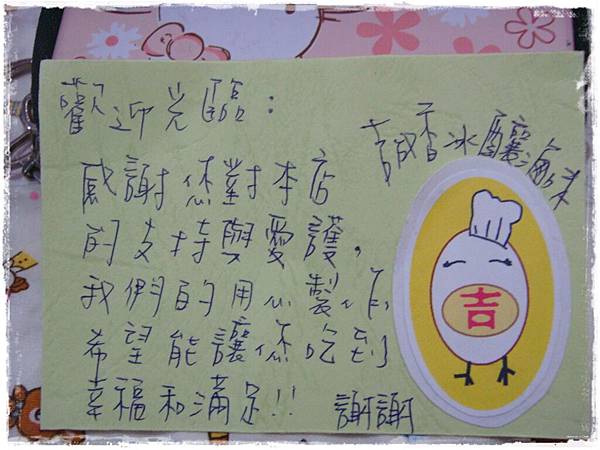 歡迎光臨：
誠香冰釀滷味
感謝您對本店
的支持與愛護，
我們的用心製作，
希望能讓您吃到
幸福和滿足!!
謝謝
吉